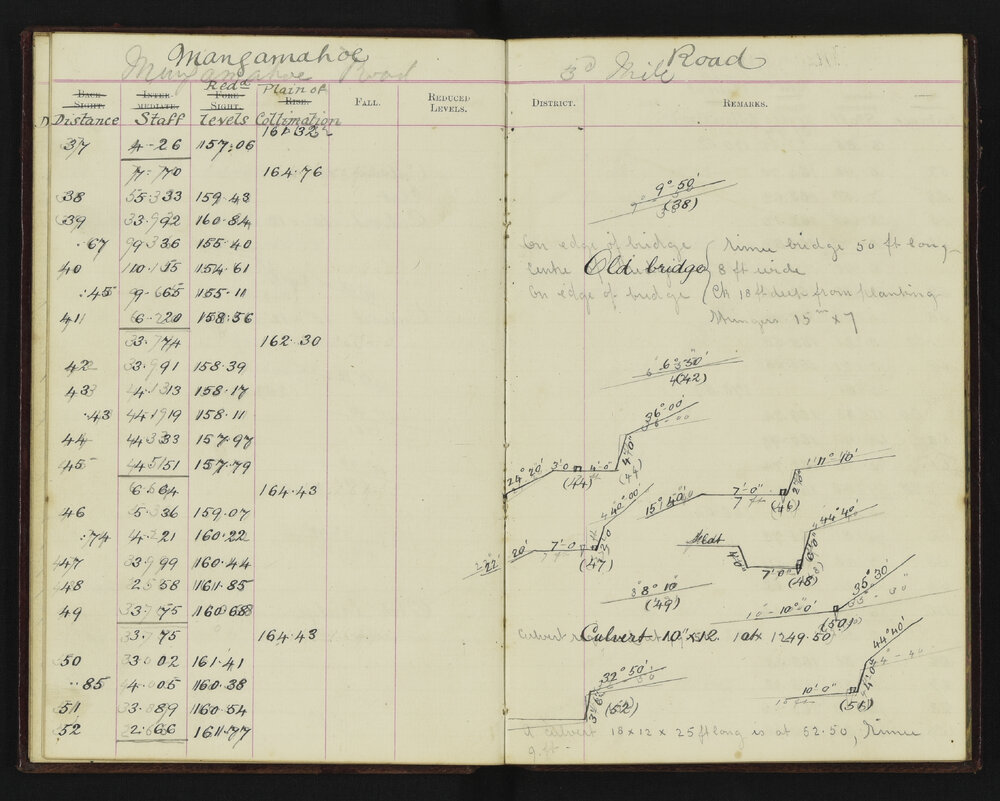 Mangamahoe Road
Mangamahoe Road 3rd Mile
Back Sight. Inter mediate. Fore Sight. Rise. Fall. Reduced Levels. District. Remarks.
Distance Staff Redd levels Plain of Collimation
161.32
37 4-26 157.06
7.70 164.76
38 5.33 159.43
39 3.92 160.84
.67 9.36 155.40
40 10.15 154.61
.45 9.65 155.11
41 6.20 158.56
3.74 162.30
42 3.91 158.39
43 4.13 158.17
.43 4.19 158.11
44 4.33 157.97
45 4.51 157.79
6.64 164.43
46 5.36 159.07
.74 4.21 160.22
47 3.99 160.44
48 2.58 161.85
49 3.75 160.68
3.75 164.43
50 3.02 161.41
.85 4.05 160.38
51 3.89 160.54
52 2.66 161.77
9° 50'
(38)
On edge of bridge
Rimu bridge 50 ft long
Centre
Old bridge
8 ft wide
On edge of bridge
Ck 18 ft deep from planking
Stringers 15" x 7
6° 30'
(42)
24° 20' 3'0 4'-0" 4'0" 36°-00'
(44)
15° 40' 7'-0" 11°-10'
(46)
22° 20' 7'-0 40°-00'
(47)
Flat 7'0" 44°40'
(48)
8° 10'
(49)
10'-0" 35° 30'
(50)
Culvert 10" x 12 at 49.50
32° 50'
(52)
10' 0" 4'0" 44° 40'
(51)
A culvert 18 x 12 x 25 ft long is at 52.50, Rimu
9 ft -